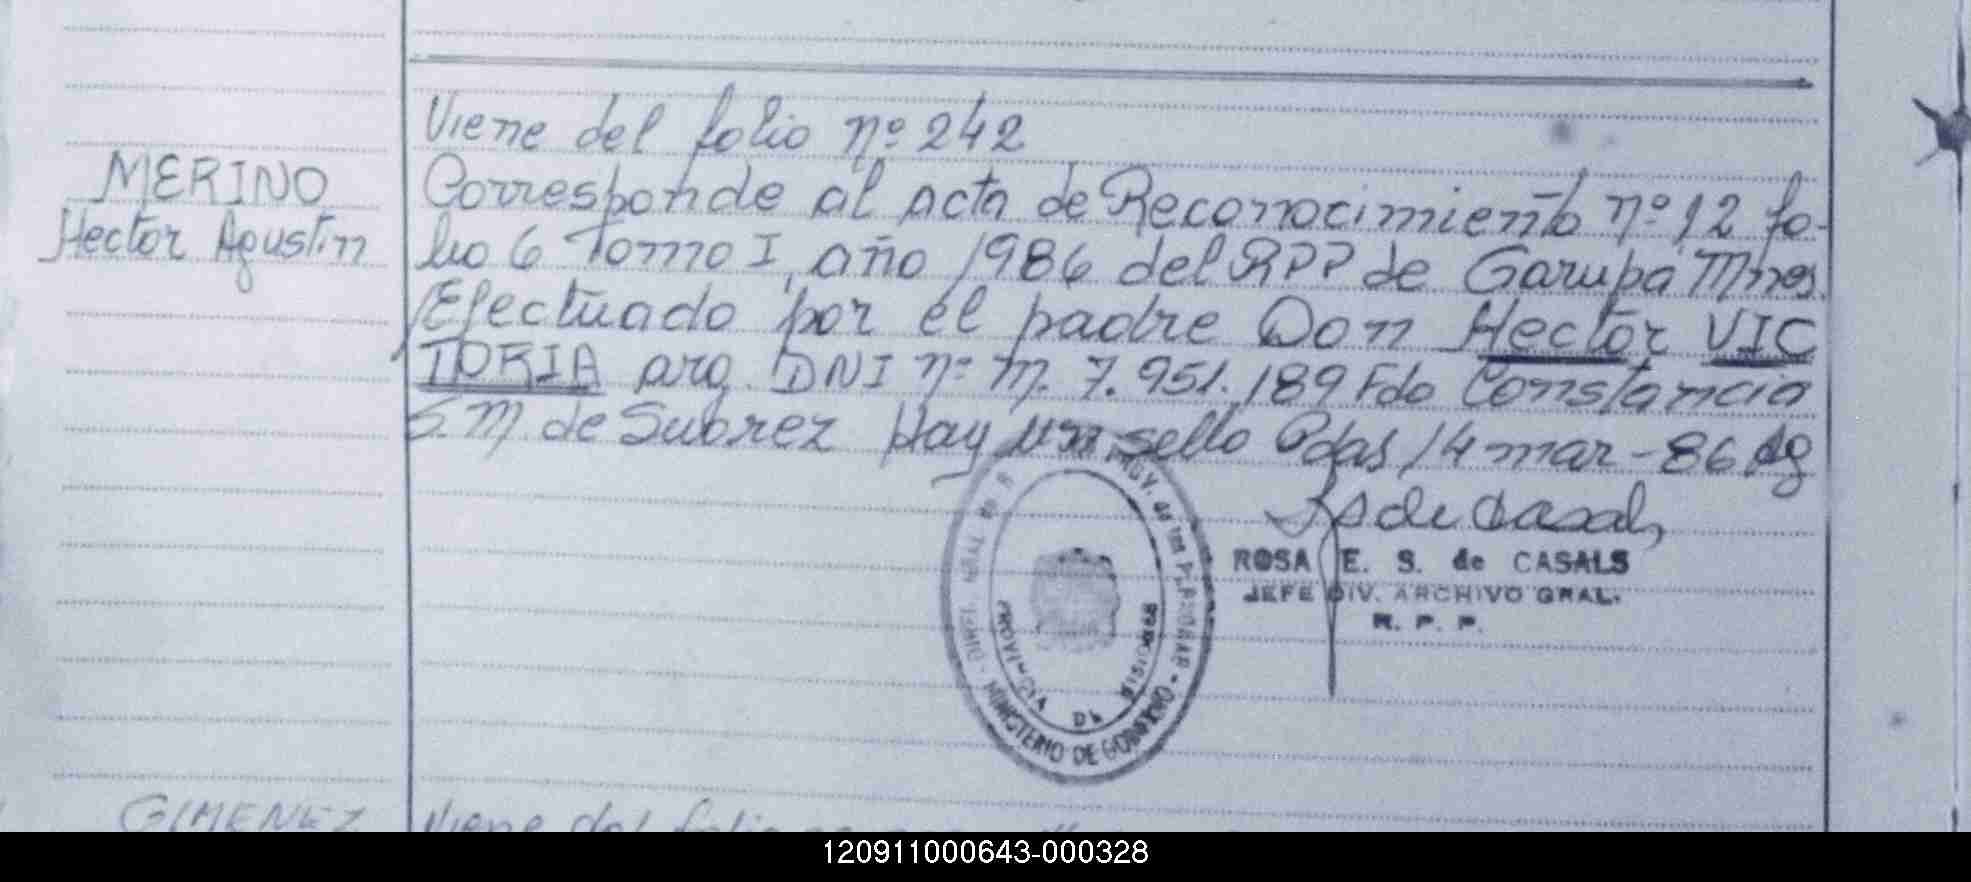 Viene del folio nº 242
MERINO
Hector Agustin
Corresponde al acta de Reconocimiento nº 12 fo-
lio 6 Tomo I, año 1986 del RPP de Garupa Mnes.
Efectuado por el padre Don Hector VIC
TORIA arg. DNI nº m. 7.951.189 Fdo Constancia
S.M. de Suarez Hay un sello Pdas 14 mar-86 Ag
ROSA E. S. de CASALS
JEFE DIV. ARCHIVO GRAL.
R. P. P.
PROVINCIA DE MISIONES
MINISTERIO DE GOBIERNO
GIMENEZ
Viene del folio
120911000643-000328